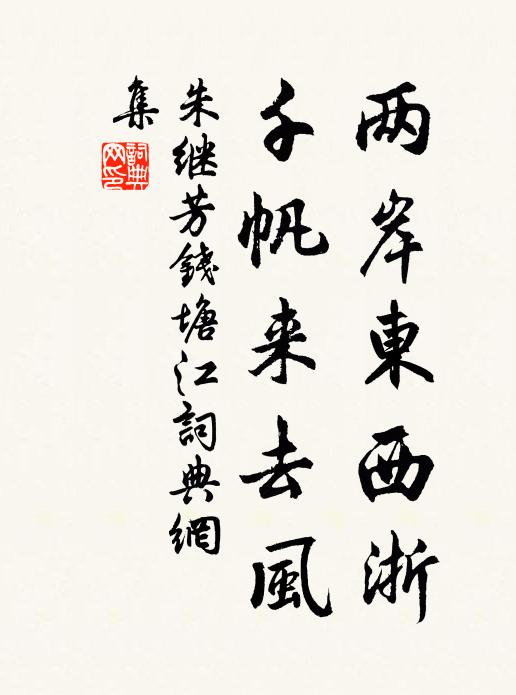 两岸東西浙
千帆来去風
朱继芳錢塘江詞典網
集
詞典网印